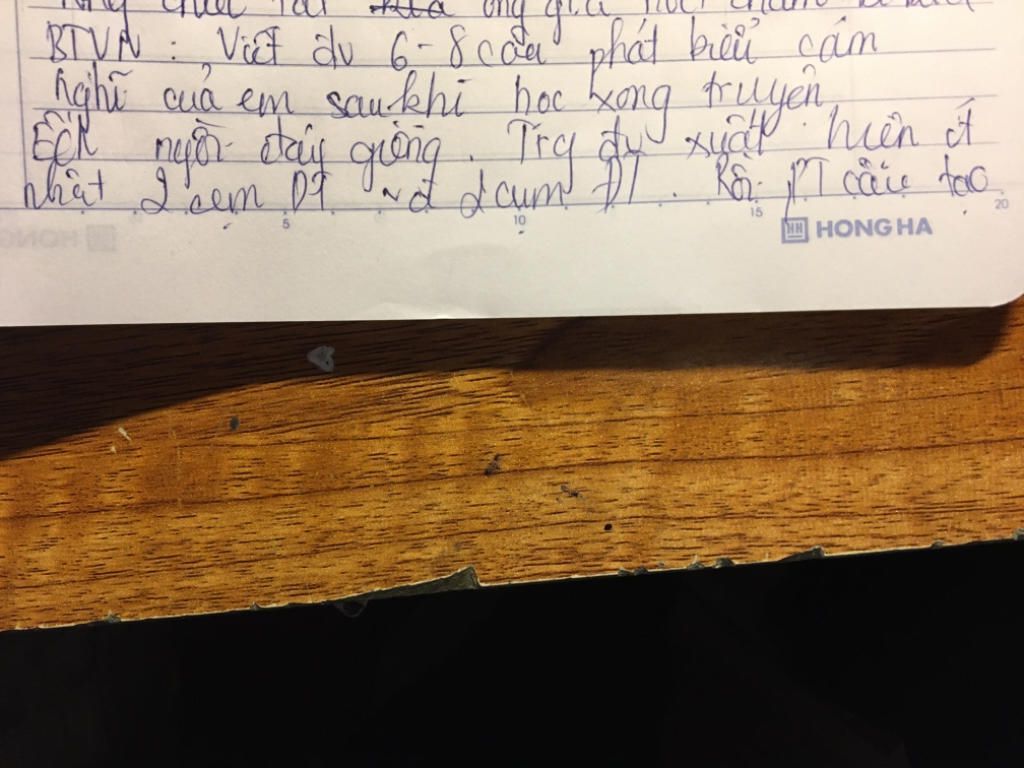 BTVN : Viết đv 6-8 câu phát biểu cảm
nghĩ của em sau khi học xong truyện
Ếch ngồi đáy giếng. Trg đv xuất hiện ít
nhất 2 cụm DT và 2 cụm ĐT. Rồi PT cấu tạo
5 10 15 20
HONG HA